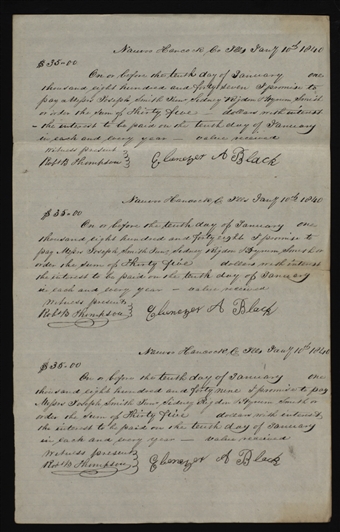 Nauvoo Hancock Co Ills Jany 10th 1840
$35.00
On or before the tenth day of January one
thousand eight hundred and forty seven I promise to
pay Messr Joseph Smith Junr Sidney Rigdon & Hyrum Smith
or order the sum of Thirty five dollars with interest
the interest to be paid on the tenth day of January
in each and every year value received
witness present
Robt B Thompson Ebenezer A Black
Nauvoo Hancock Co Ills Jany 10th 1840
$35.00
On or before the tenth day of January one
thousand eight hundred and forty eight I promise to
pay Messr Joseph Smith Junr Sidney Rigdon & Hyrum Smith or
order the sum of Thirty five dollars with interest
the interest to be paid on the tenth day of January
in each and every year value received
Witness present
Robt B Thompson Ebenezer A Black
Nauvoo Hancock Co Ills Jany 10th 1840
$35.00
On or before the tenth day of January one
thousand eight hundred and forty nine I promise to pay
Messr Joseph Smith Junr Sidney Rigdon & Hyrum Smith or
order the sum of Thirty five dollars with interest,
the interest to be paid on the tenth day of January
in each and every year value received
Witness present
Robt B Thompson Ebenezer A Black